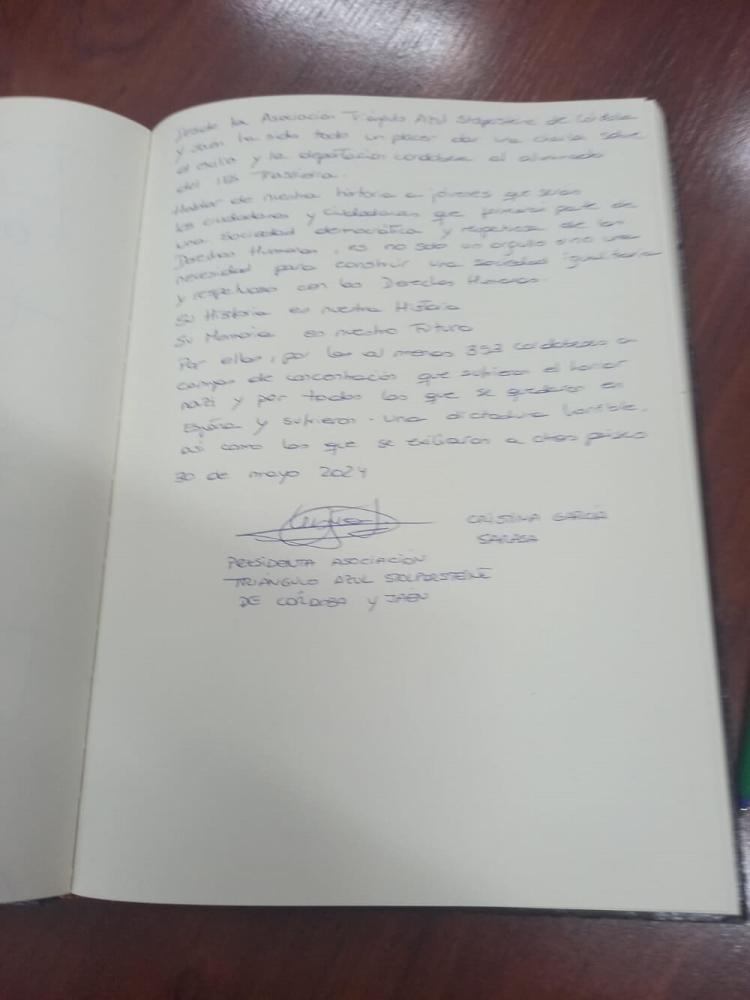 Desde la Asociación Triángulo Azul Stolpersteine de Córdoba
y Jaén ha sido todo un placer dar una charla sobre
el exilio y la deportación cordobesa al alumnado
del IES Trassierra.
Hablar de nuestra historia a jóvenes que serán
los ciudadanos y ciudadanas que formarán parte de
una sociedad democrática y respetuosa de los
Derechos Humanos, es no solo un orgullo sino una
necesidad para construir una sociedad igualitaria
y respetuosa con los Derechos Humanos.
Su Historia es nuestra Historia
Su Memoria es nuestro Futuro
Por ellos, por los al menos cordobeses a
campos de concentración que sufrieron el horror
nazi y por todos los que se quedaron en
España y sufrieron una dictadura horrible,
así como los que se exiliaron a otros países
30 de mayo 2024
CRISTINA GARCÍA
SARASA
PRESIDENTA ASOCIACIÓN
TRIÁNGULO AZUL STOLPERSTEINE
DE CÓRDOBA Y JAÉN